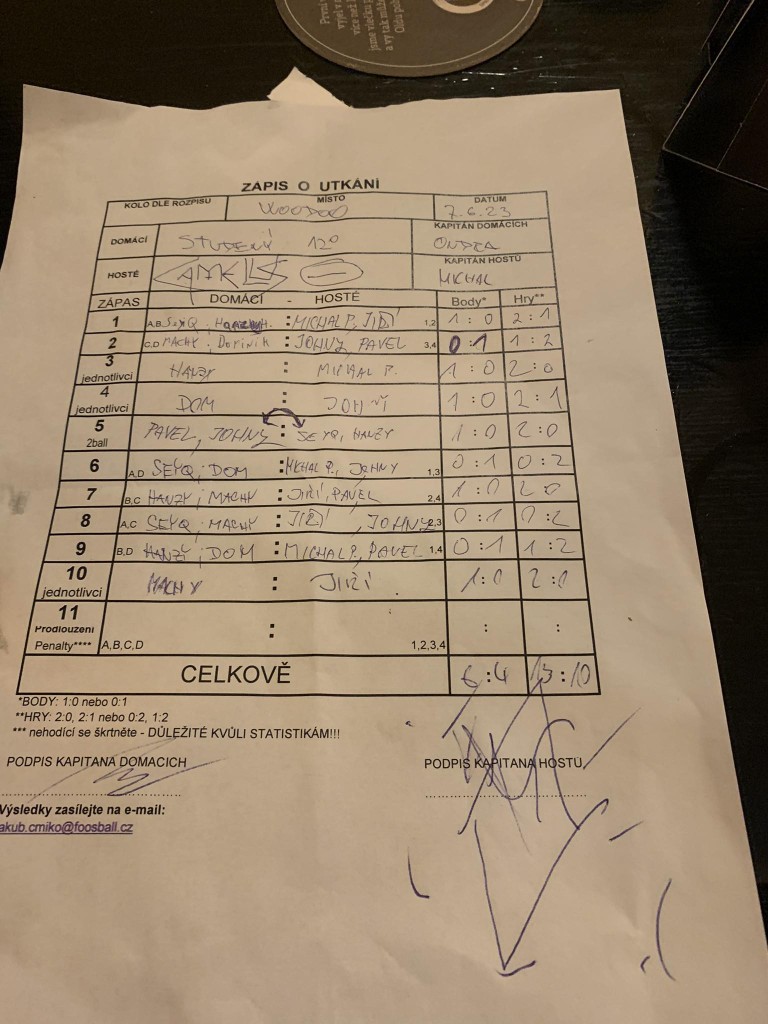 více než
jsme všecku p
a vy tak může
Oldu pol
ZÁPIS O UTKÁNÍ
KOLO DLE ROZPISU MÍSTO DATUM
VOODOO 7.6.23
DOMÁCÍ STUDENÝ 12° KAPITÁN DOMÁCÍCH
ONDRA
HOSTÉ KAPITÁN HOSTŮ
MICHAL
ZÁPAS DOMÁCÍ - HOSTÉ Body* Hry**
1 A,B SEYQ, : MICHAL P., JIŘÍ 1,2 1 : 0 2 : 1
2 C,D MACHY, Dominik : JOHNY, PAVEL 3,4 0 : 1 1 : 2
3 jednotlivci HANZY : MICHAL P. 1 : 0 2 : 0
4 jednotlivci DOM : JOHNY 1 : 0 2 : 1
5 2ball PAVEL, JOHNY : SEYQ, HANZY 1 : 0 2 : 0
6 A,D SEYQ, DOM : MICHAL P., JOHNY 1,3 0 : 1 0 : 2
7 B,C HANZY, MACHY : JIŘÍ, PAVEL 2,4 1 : 0 2 0
8 A,C SEYQ, MACHY : JIŘÍ, JOHNY 2,3 0 : 1 0 : 2
9 B,D HANZY, DOM : MICHAL P., PAVEL 1,4 0 : 1 1 : 2
10 jednotlivci MACHY : JIŘÍ 1 : 0 2 : 0
11 Prodloužení Penalty**** A,B,C,D : 1,2,3,4 : :
CELKOVĚ 6 : 4 13 : 10
*BODY: 1:0 nebo 0:1
**HRY: 2:0, 2:1 nebo 0:2, 1:2
*** nehodící se škrtněte - DŮLEŽITÉ KVŮLI STATISTIKÁM!!!
PODPIS KAPITÁNA DOMÁCÍCH PODPIS KAPITÁNA HOSTŮ
Výsledky zasílejte na e-mail:
akub.cmiko@foosball.cz